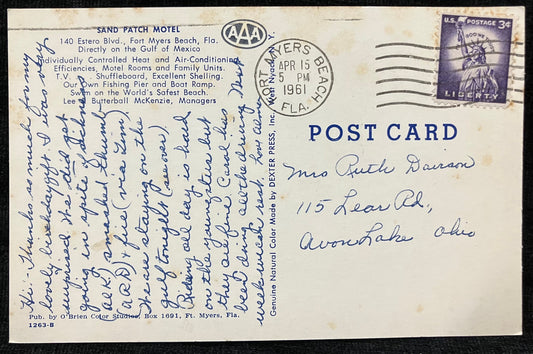 SAND PATCH MOTEL
140 Estero Blvd., Fort Myers Beach, Fla.
Directly on the Gulf of Mexico
Individually Controlled Heat and Air-Conditioning
Efficiencies, Motel Rooms and Family Units.
T.V. . . Shuffleboard, Excellent Shelling.
Our Own Fishing Pier and Boat Ramp.
Swim on the World's Safest Beach.
Lee & Butterball McKenzie, Managers
AAA
FORT MYERS BEACH
APR 15
5 PM
1961
FLA.
U.S. POSTAGE 3¢
IN GOD WE TRUST
LIBERTY
POST CARD
Mrs Ruth Dawson
115 Lear Rd.,
Avon Lake Ohio
Hi: Thanks so much for my
lovely birthday gift I was very
surprised. We did get
going in spite of sickness
(al K) smashed thumb
(ARD) & fire (was Gim)
We are staying on the
gulf tonight (see over)
Riding all day is hard
on the youngsters but
they are fine Carol has
been doing all the driving. Next
week we rest. Love
Genuine Natural Color Made by DEXTER PRESS, Inc. West Nyack, N. Y.
Pub. by O'Brien Color Studios, Box 1691, Ft. Myers, Fla.
1263-B